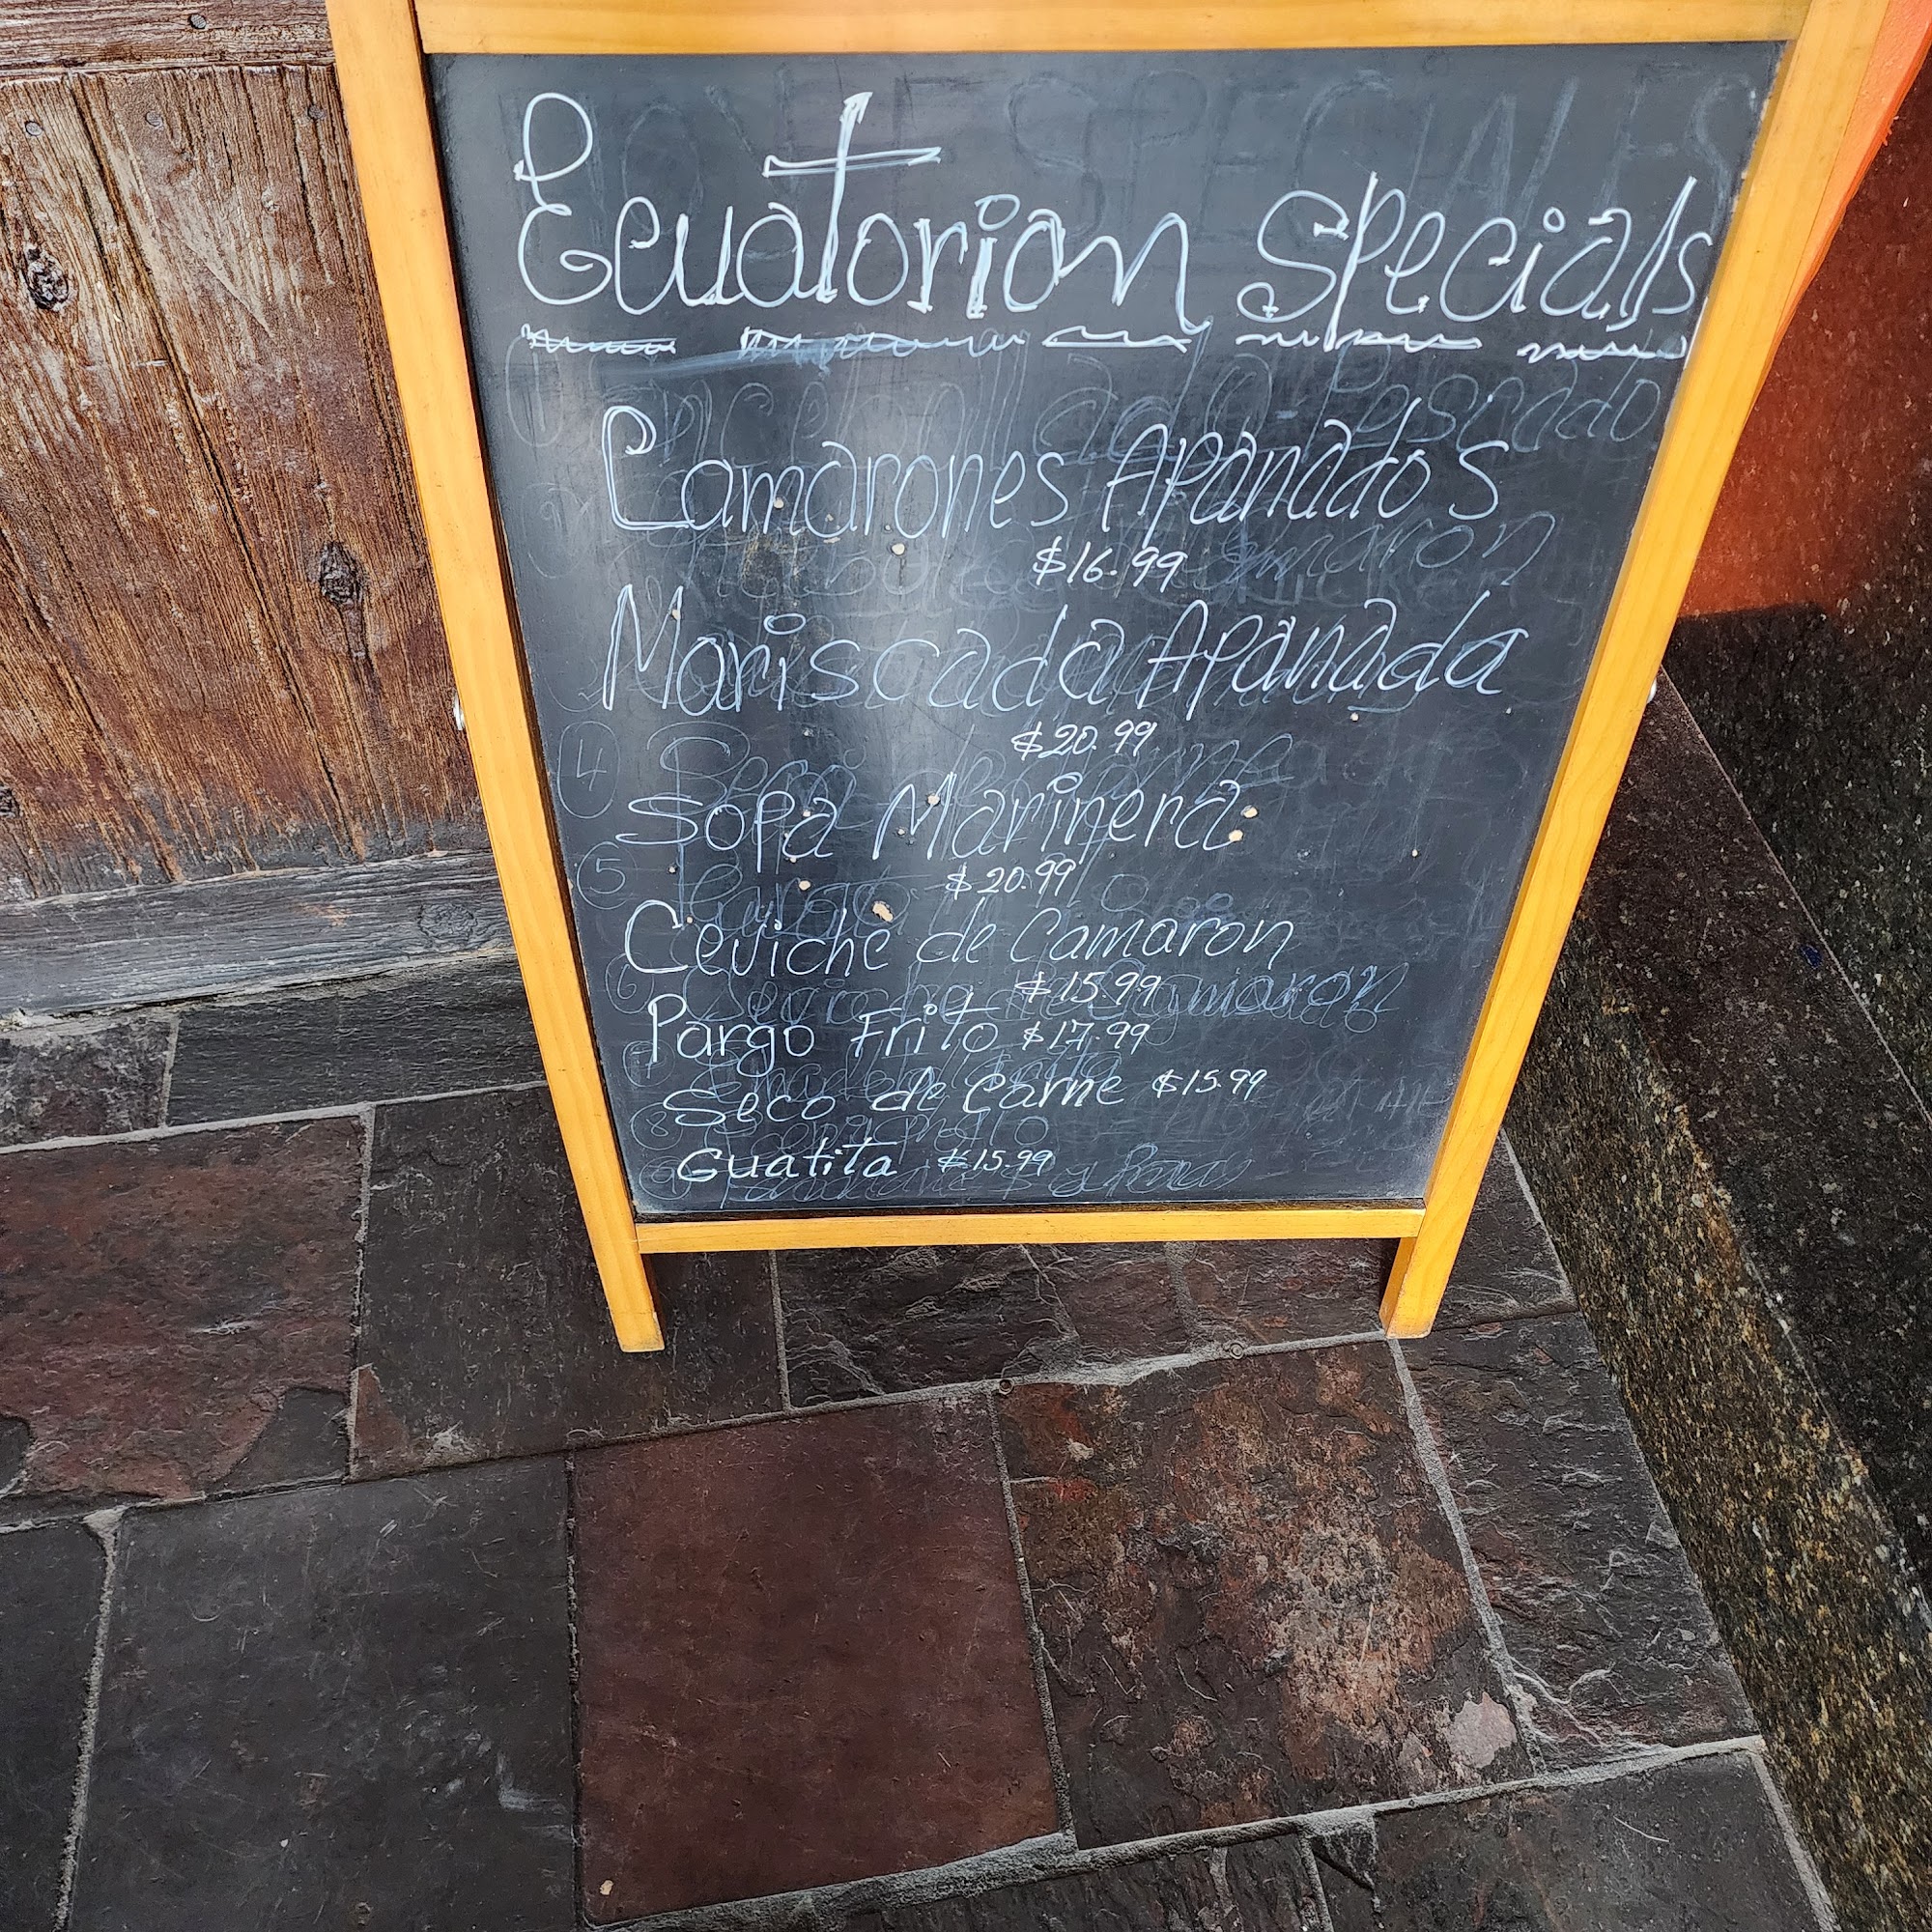 Ecuatorian Specials
Camarones Apanados
$16.99
Mariscada Apanada
$20.99
Sopa Marinera
$20.99
Ceviche de Camaron
$15.99
Pargo Frito $17.99
Seco de Carne $15.99
Guatita $15.99